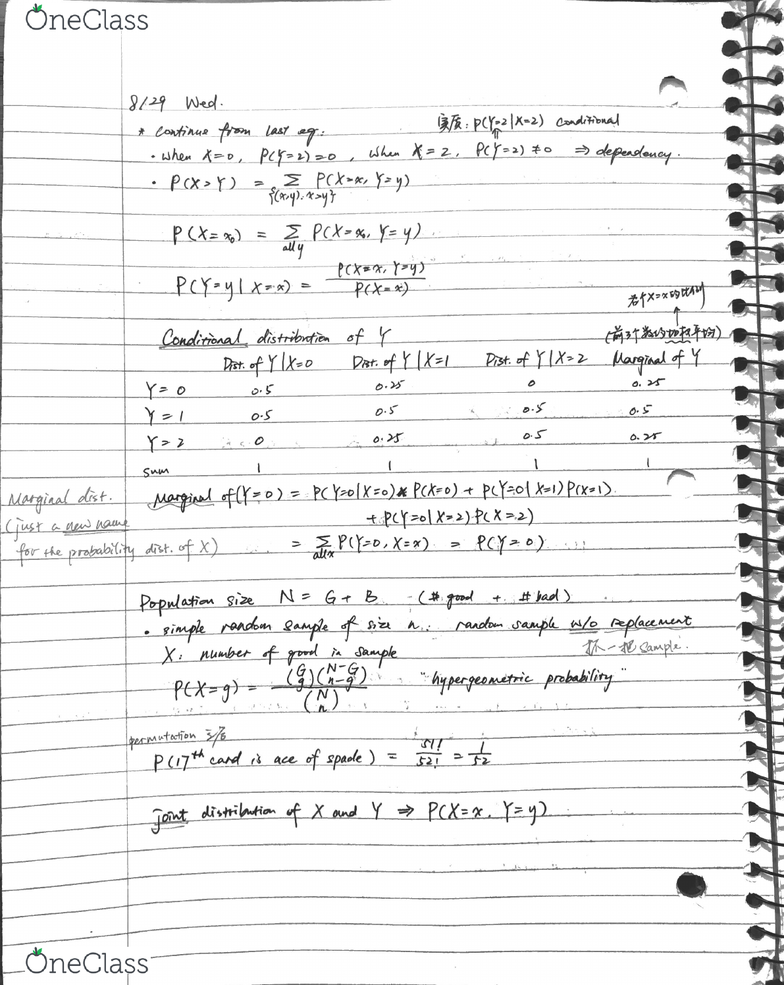 OneClass
8/29 Wed.
实质: P(Y=2|X=2) conditional
* continue from last eg:
• when X=0, P(Y=2)=0, when X=2, P(Y=2)≠0 ⇒ dependency.
• P(X>Y) = Σ_{{(x,y): x>y}} P(X=x, Y=y)
P(X=x₀) = Σ_{all y} P(X=x₀, Y=y)
P(Y=y | X=x) = P(X=x, Y=y) / P(X=x)
Conditional distribution of Y
Dist. of Y|X=0 Dist. of Y|X=1 Dist. of Y|X=2 Marginal of Y
Y=0 0.5 0.25 0 0.25
Y=1 0.5 0.5 0.5 0.5
Y=2 0 0.25 0.5 0.25
sum 1 1 1 1
Marginal dist.
(just a new name
for the probability dist. of X)
Marginal of (Y=0) = P(Y=0|X=0) * P(X=0) + P(Y=0|X=1)P(X=1)
+ P(Y=0|X=2)P(X=2)
= Σ_{all x} P(Y=0, X=x) = P(Y=0)
Population size N = G + B (# good + # bad)
• simple random sample of size n: random sample w/o replacement
抓一把 sample.
X: number of good in sample
P(X=g) = (G g)(N-G n-g) / (N n) "hypergeometric probability"
permutation
P(17th card is ace of spade) = 51!/52! = 1/52
joint distribution of X and Y ⇒ P(X=x, Y=y)
OneClass